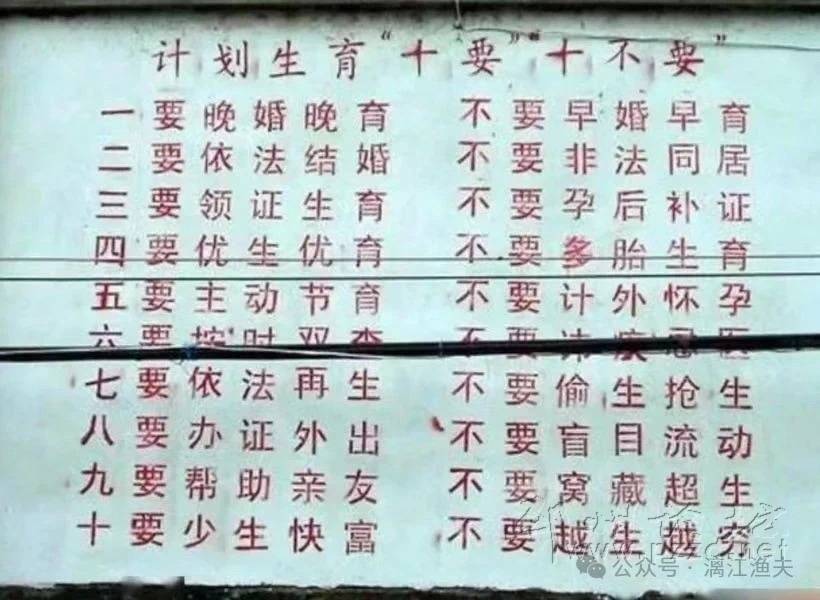 计划生育“十要”“十不要”
一要晚婚晚育 不要早婚早育
二要依法结婚 不要非法同居
三要领证生育 不要孕后补证
四要优生优育 不要多胎生育
五要主动节育 不要计外怀孕
六要按时双查 不要讳疾忌医
七要依法再生 不要偷生抢生
八要办证外出 不要盲目流动
九要帮助亲友 不要窝藏超生
十要少生快富 不要越生越穷
公众号·漓江渔夫